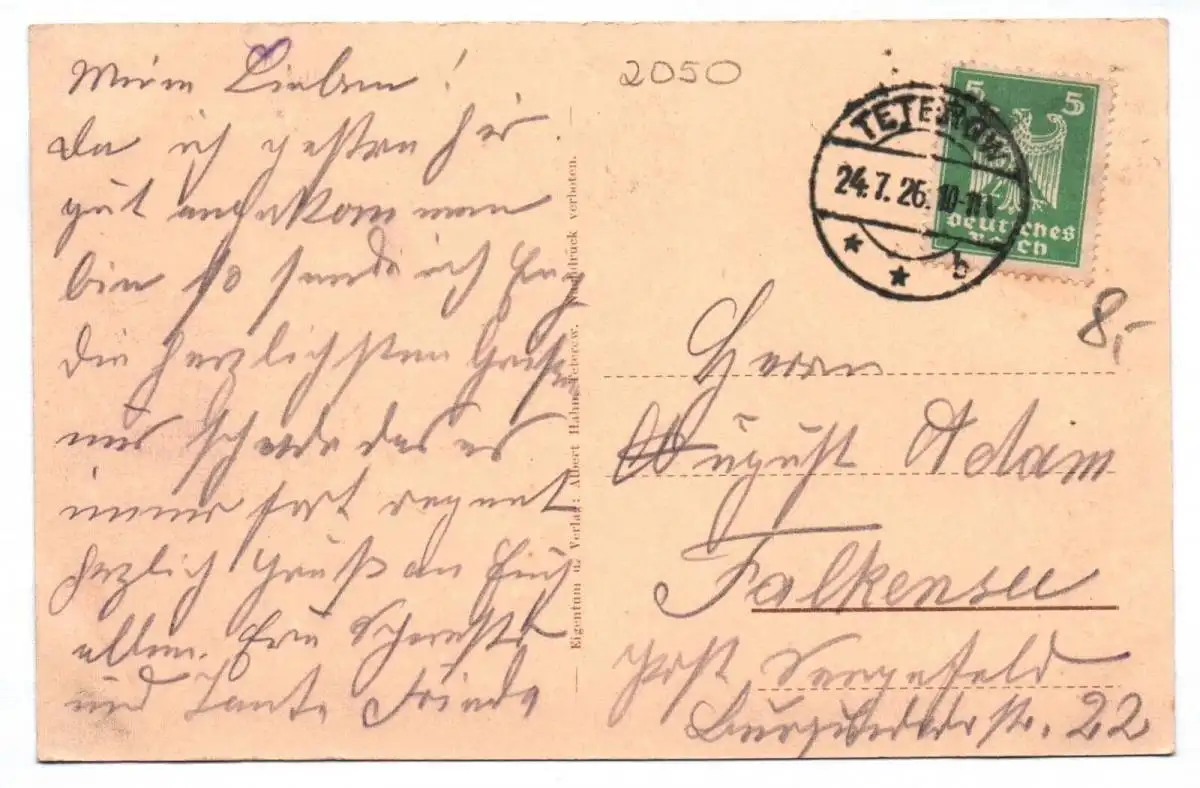 Meine Lieben!
Da ich gestern hir
gut angekommen
bin so sende ich Euch
die herzlichsten Grüße
nur schade das es
immer fort regnet
herzlich Gruß an Euch
allen. Eure Schwester
und Tante Frieda
Eigentum u. Verlag: Albert Hahn, Teterow. Nachdruck verboten.
2050
TETEROW
24.7.26. 10-11V
* * b
5 5
Deutsches
Reich
8,-
Herrn
August Adam
Falkensee
Post Seegefeld
str. 22